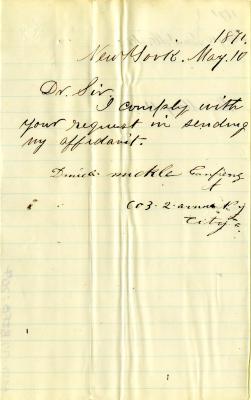 1871.
New York. May. 10
Dr. Sir.
I comply with
your request in sending
my affidavit.
Daniel mckle
603. 2. avnue
City